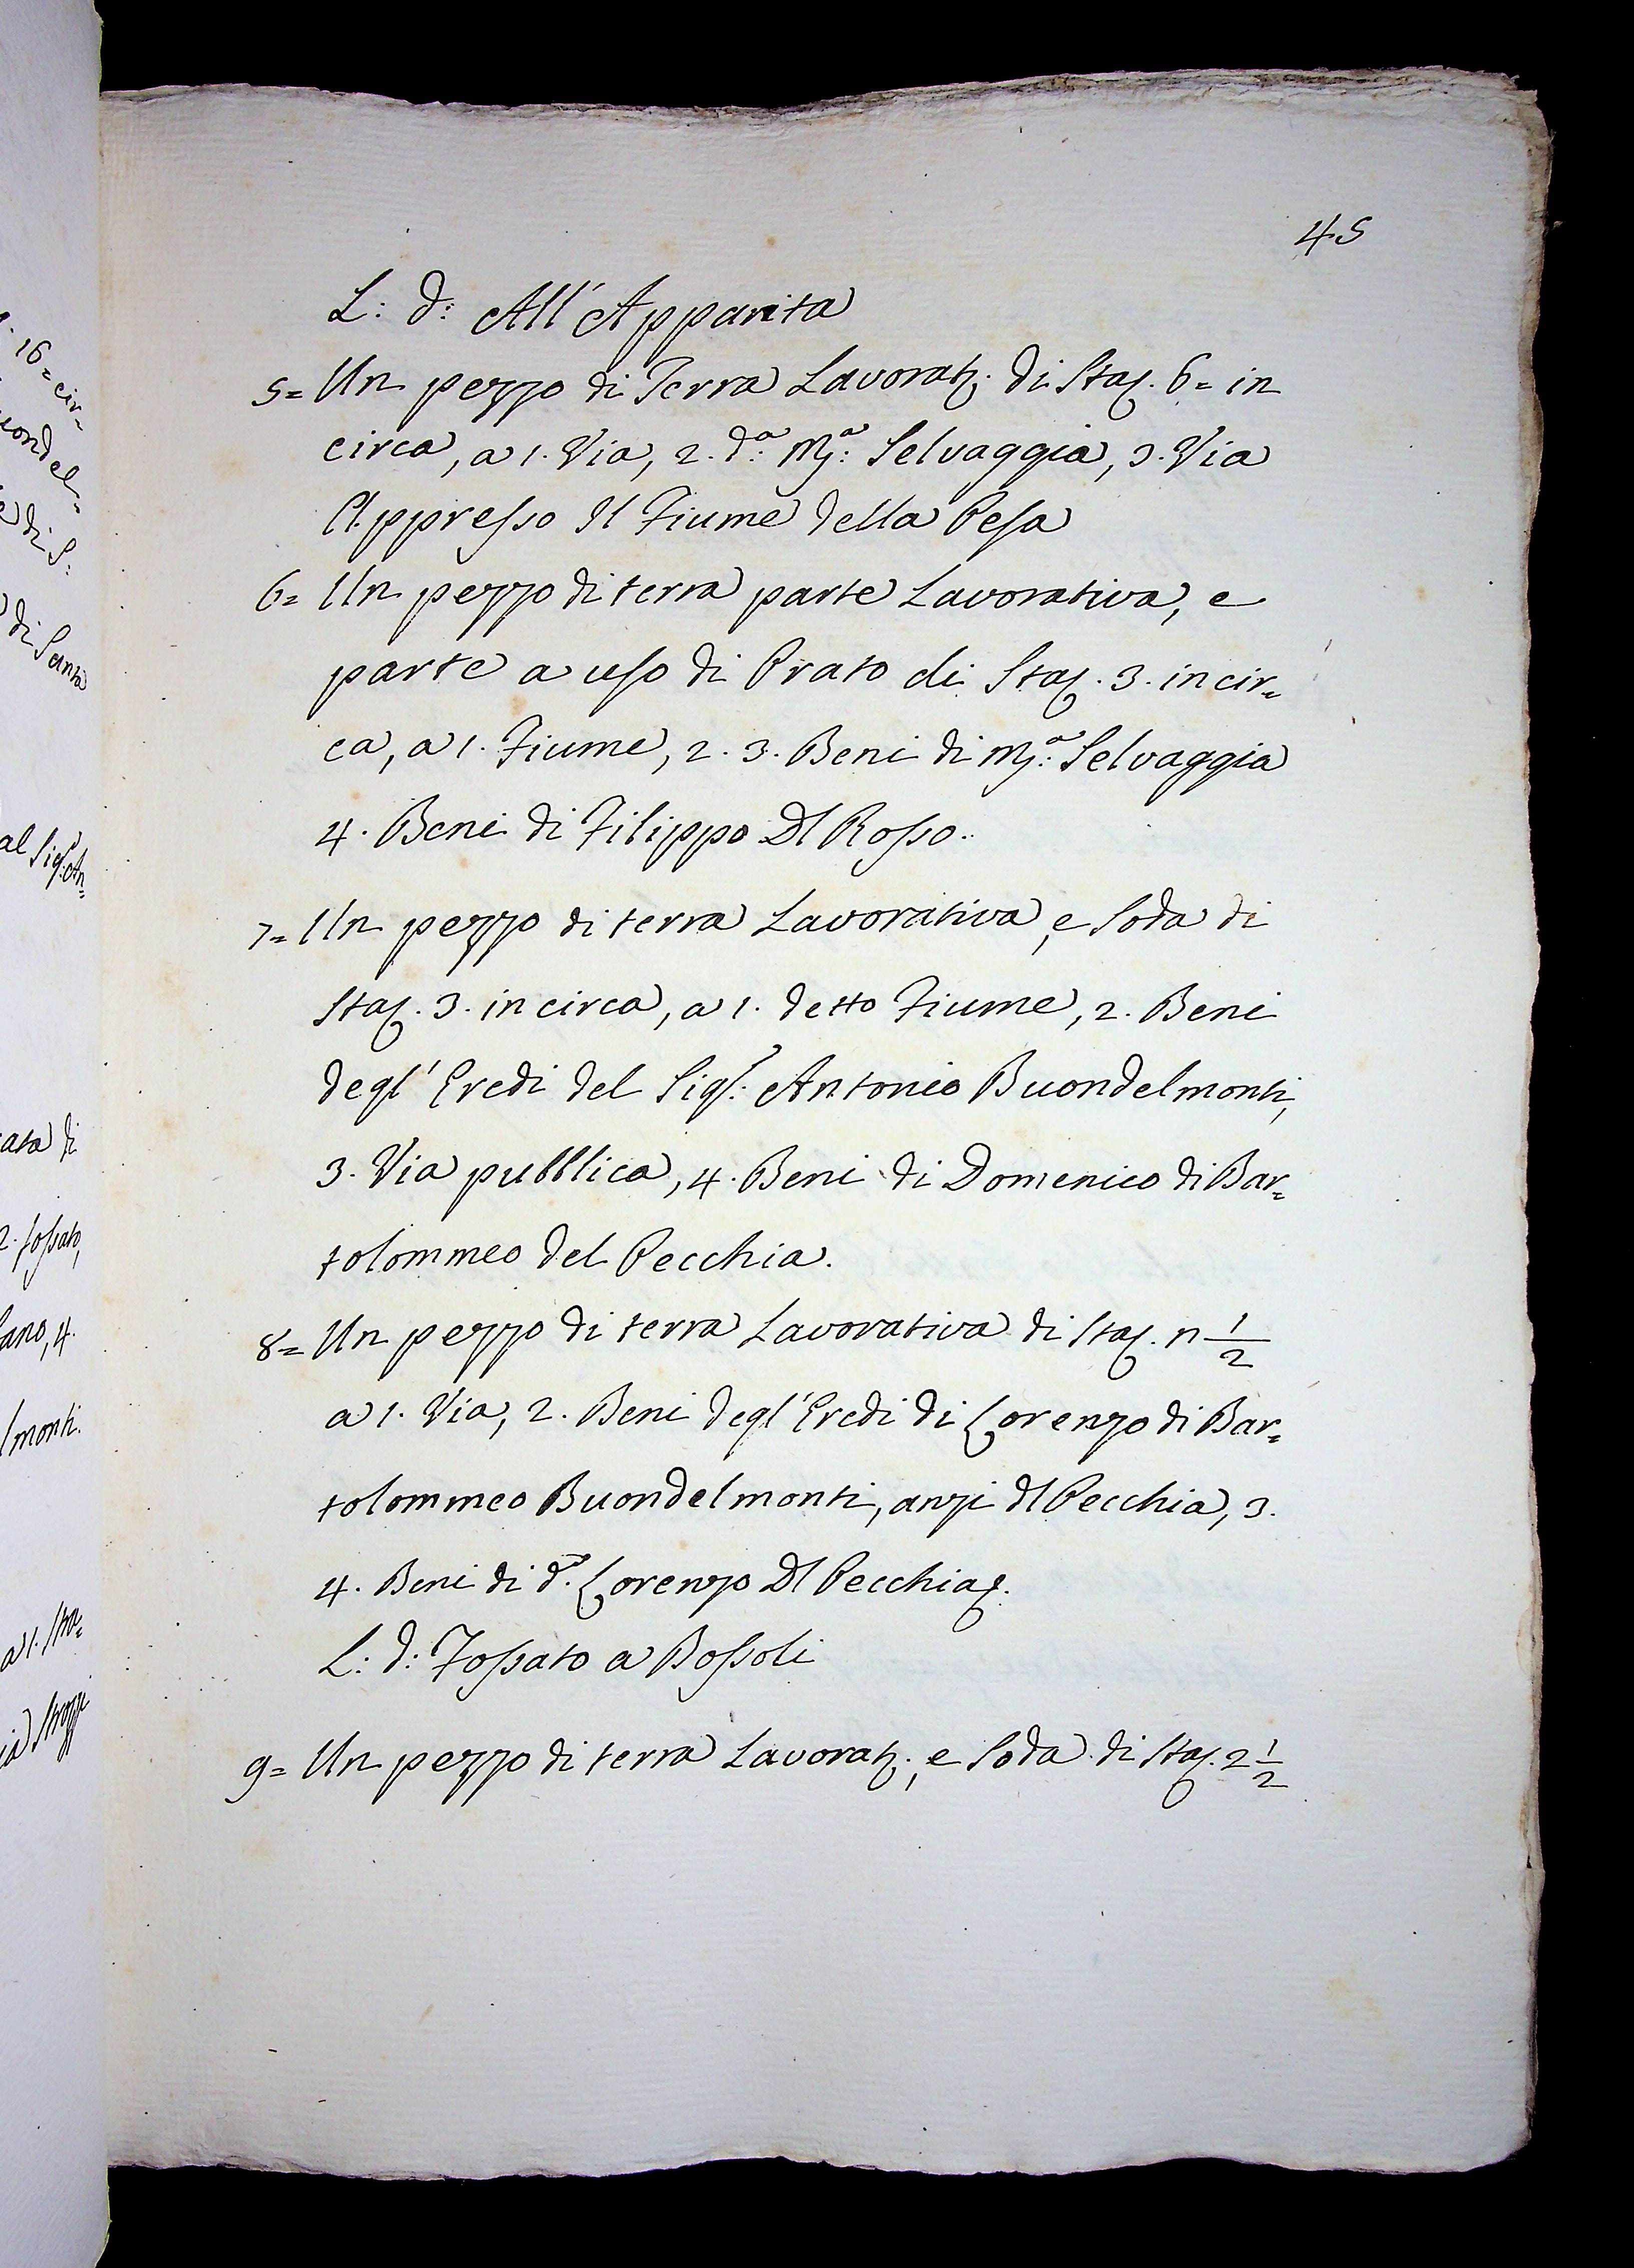 45
L: d: All' Apparita
5= Un pezzo di Terra Lavorat: di Staj. 6= in
circa, a 1. Via, 2. d.ª M.ª Selvaggia, 3. Via
Appresso Il Fiume della Pesa
6= Un pezzo di terra parte Lavorativa, e
parte a uso di Prato di Staj. 3. in cir=
ca, a 1. Fiume, 2. 3. Beni di M.ª Selvaggia
4. Beni di Filippo Dl Rosso.
7= Un pezzo di terra Lavorativa, e Soda di
Staj. 3. in circa, a 1. detto Fiume, 2. Beni
degl' Eredi del Sig.r Antonio Buondelmonti,
3. Via pubblica, 4. Beni di Domenico di Bar=
tolommeo del Pecchia.
8= Un pezzo di terra Lavorativa di Staj. n 1/2
a 1. Via, 2. Beni degl' Eredi di Lorenzo di Bar=
tolommeo Buondelmonti, anzi dl Pecchia, 3.
4. Beni di d.º Lorenzo Dl Pecchia.
L: d: Fossato a Bossoli
9= Un pezzo di terra Lavorat:, e Soda di Staj. 2 1/2
16= cir=
uondel=
di S:
di Santa
al Sig.r An=
ata di
2. fossato,
ano, 4.
lmonti.
a 1. Stra=
ia Strozzi